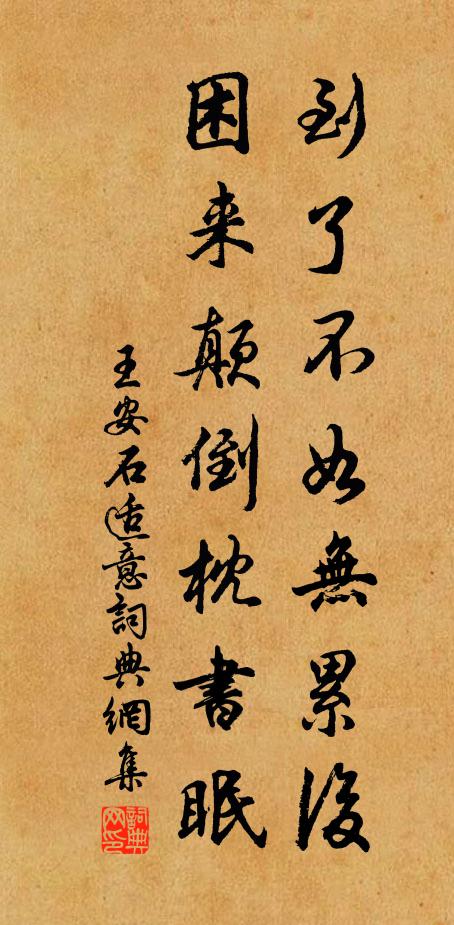 到了不如無累後
困来顛倒枕書眠
王安石适意詞典網集
詞典網印